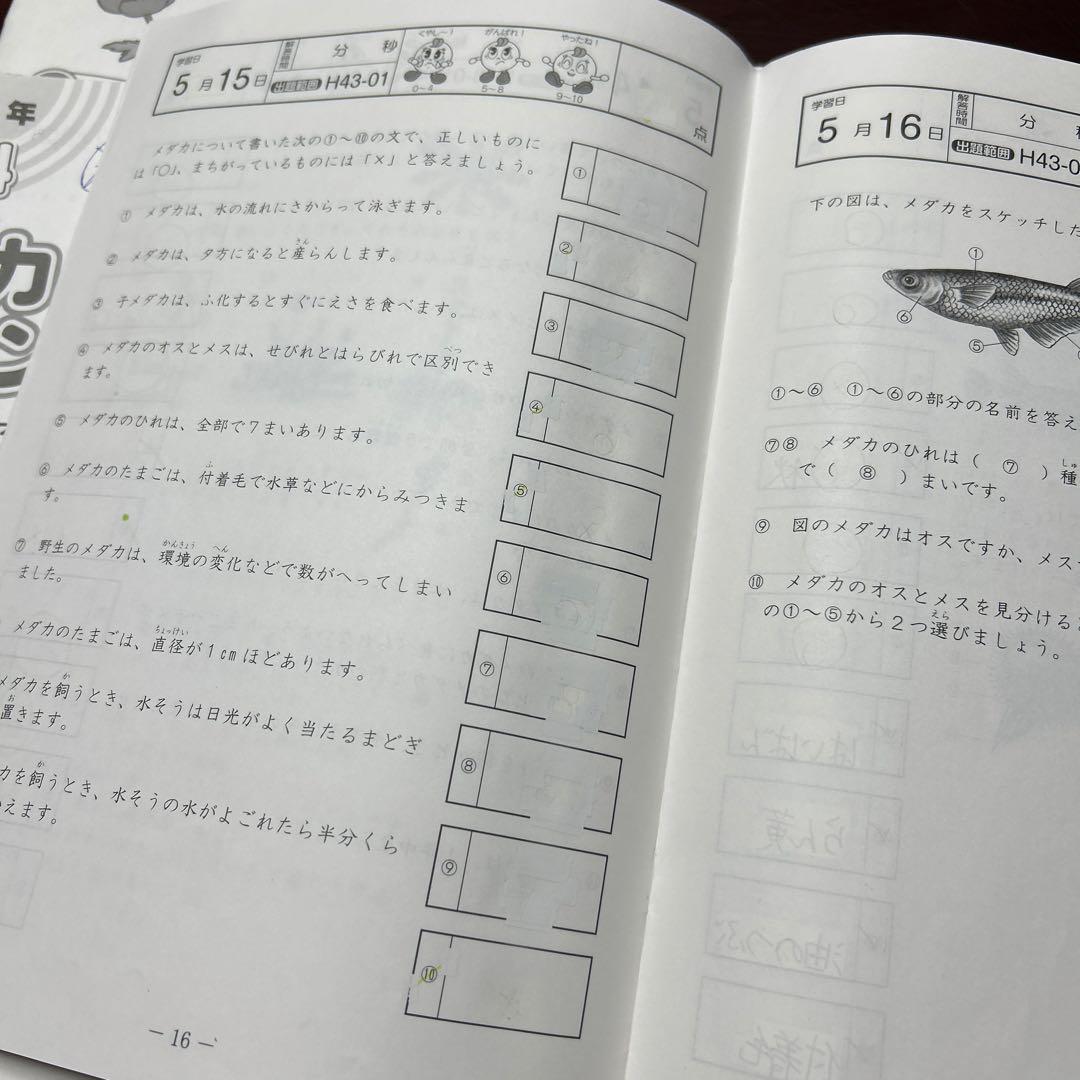 年
カ
学習日
5月15日
解答時間
分 秒
出題範囲 H43-01
くやし〜!
0〜4
がんばれ!
5〜8
やったね!
9〜10
点
メダカについて書いた次の①〜⑩の文で、正しいものに
は「○」、まちがっているものには「×」と答えましょう。
① メダカは、水の流れにさからって泳ぎます。
② メダカは、夕方になると産らんします。
さん
③ 子メダカは、ふ化するとすぐにえさを食べます。
④ メダカのオスとメスは、せびれとはらびれで区別でき
べつ
ます。
⑤ メダカのひれは、全部で7まいあります。
⑥ メダカのたまごは、付着毛で水草などにからみつきま
ふ
す。
⑦ 野生のメダカは、環境の変化などで数がへってしまい
かんきょう へん
ました。
メダカのたまごは、直径が1cmほどあります。
ちょっけい
メダカを飼うとき、水そうは日光がよく当たるまどぎ
か
置きます。
お
カを飼うとき、水そうの水がよごれたら半分くら
か
えます。
①
②
③
④
⑤
⑥
⑦
⑧
⑨
⑩
― 16 ―
学習日
5月16日
解答時間
分
出題範囲 H43-0
下の図は、メダカをスケッチした
①
⑥
⑤
①〜⑥ ①〜⑥の部分の名前を答え
⑦⑧ メダカのひれは( ⑦ )種
しゅ
で( ⑧ )まいです。
⑨ 図のメダカはオスですか、メス
⑩ メダカのオスとメスを見分ける
の①〜⑤から2つ選びましょう。
えら